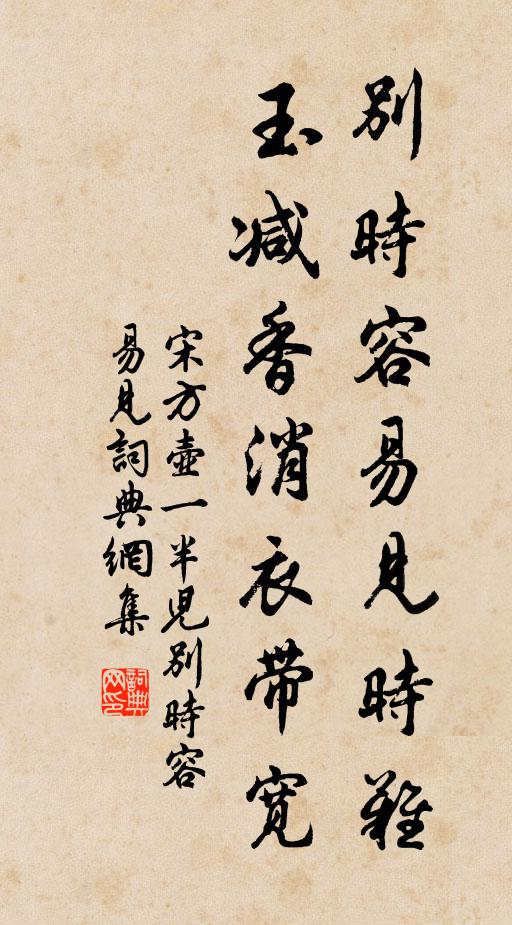 別時容易見時難
玉减香消衣帶寬
宋方壺一半児别時容
易見詞典網集
詞典
网印